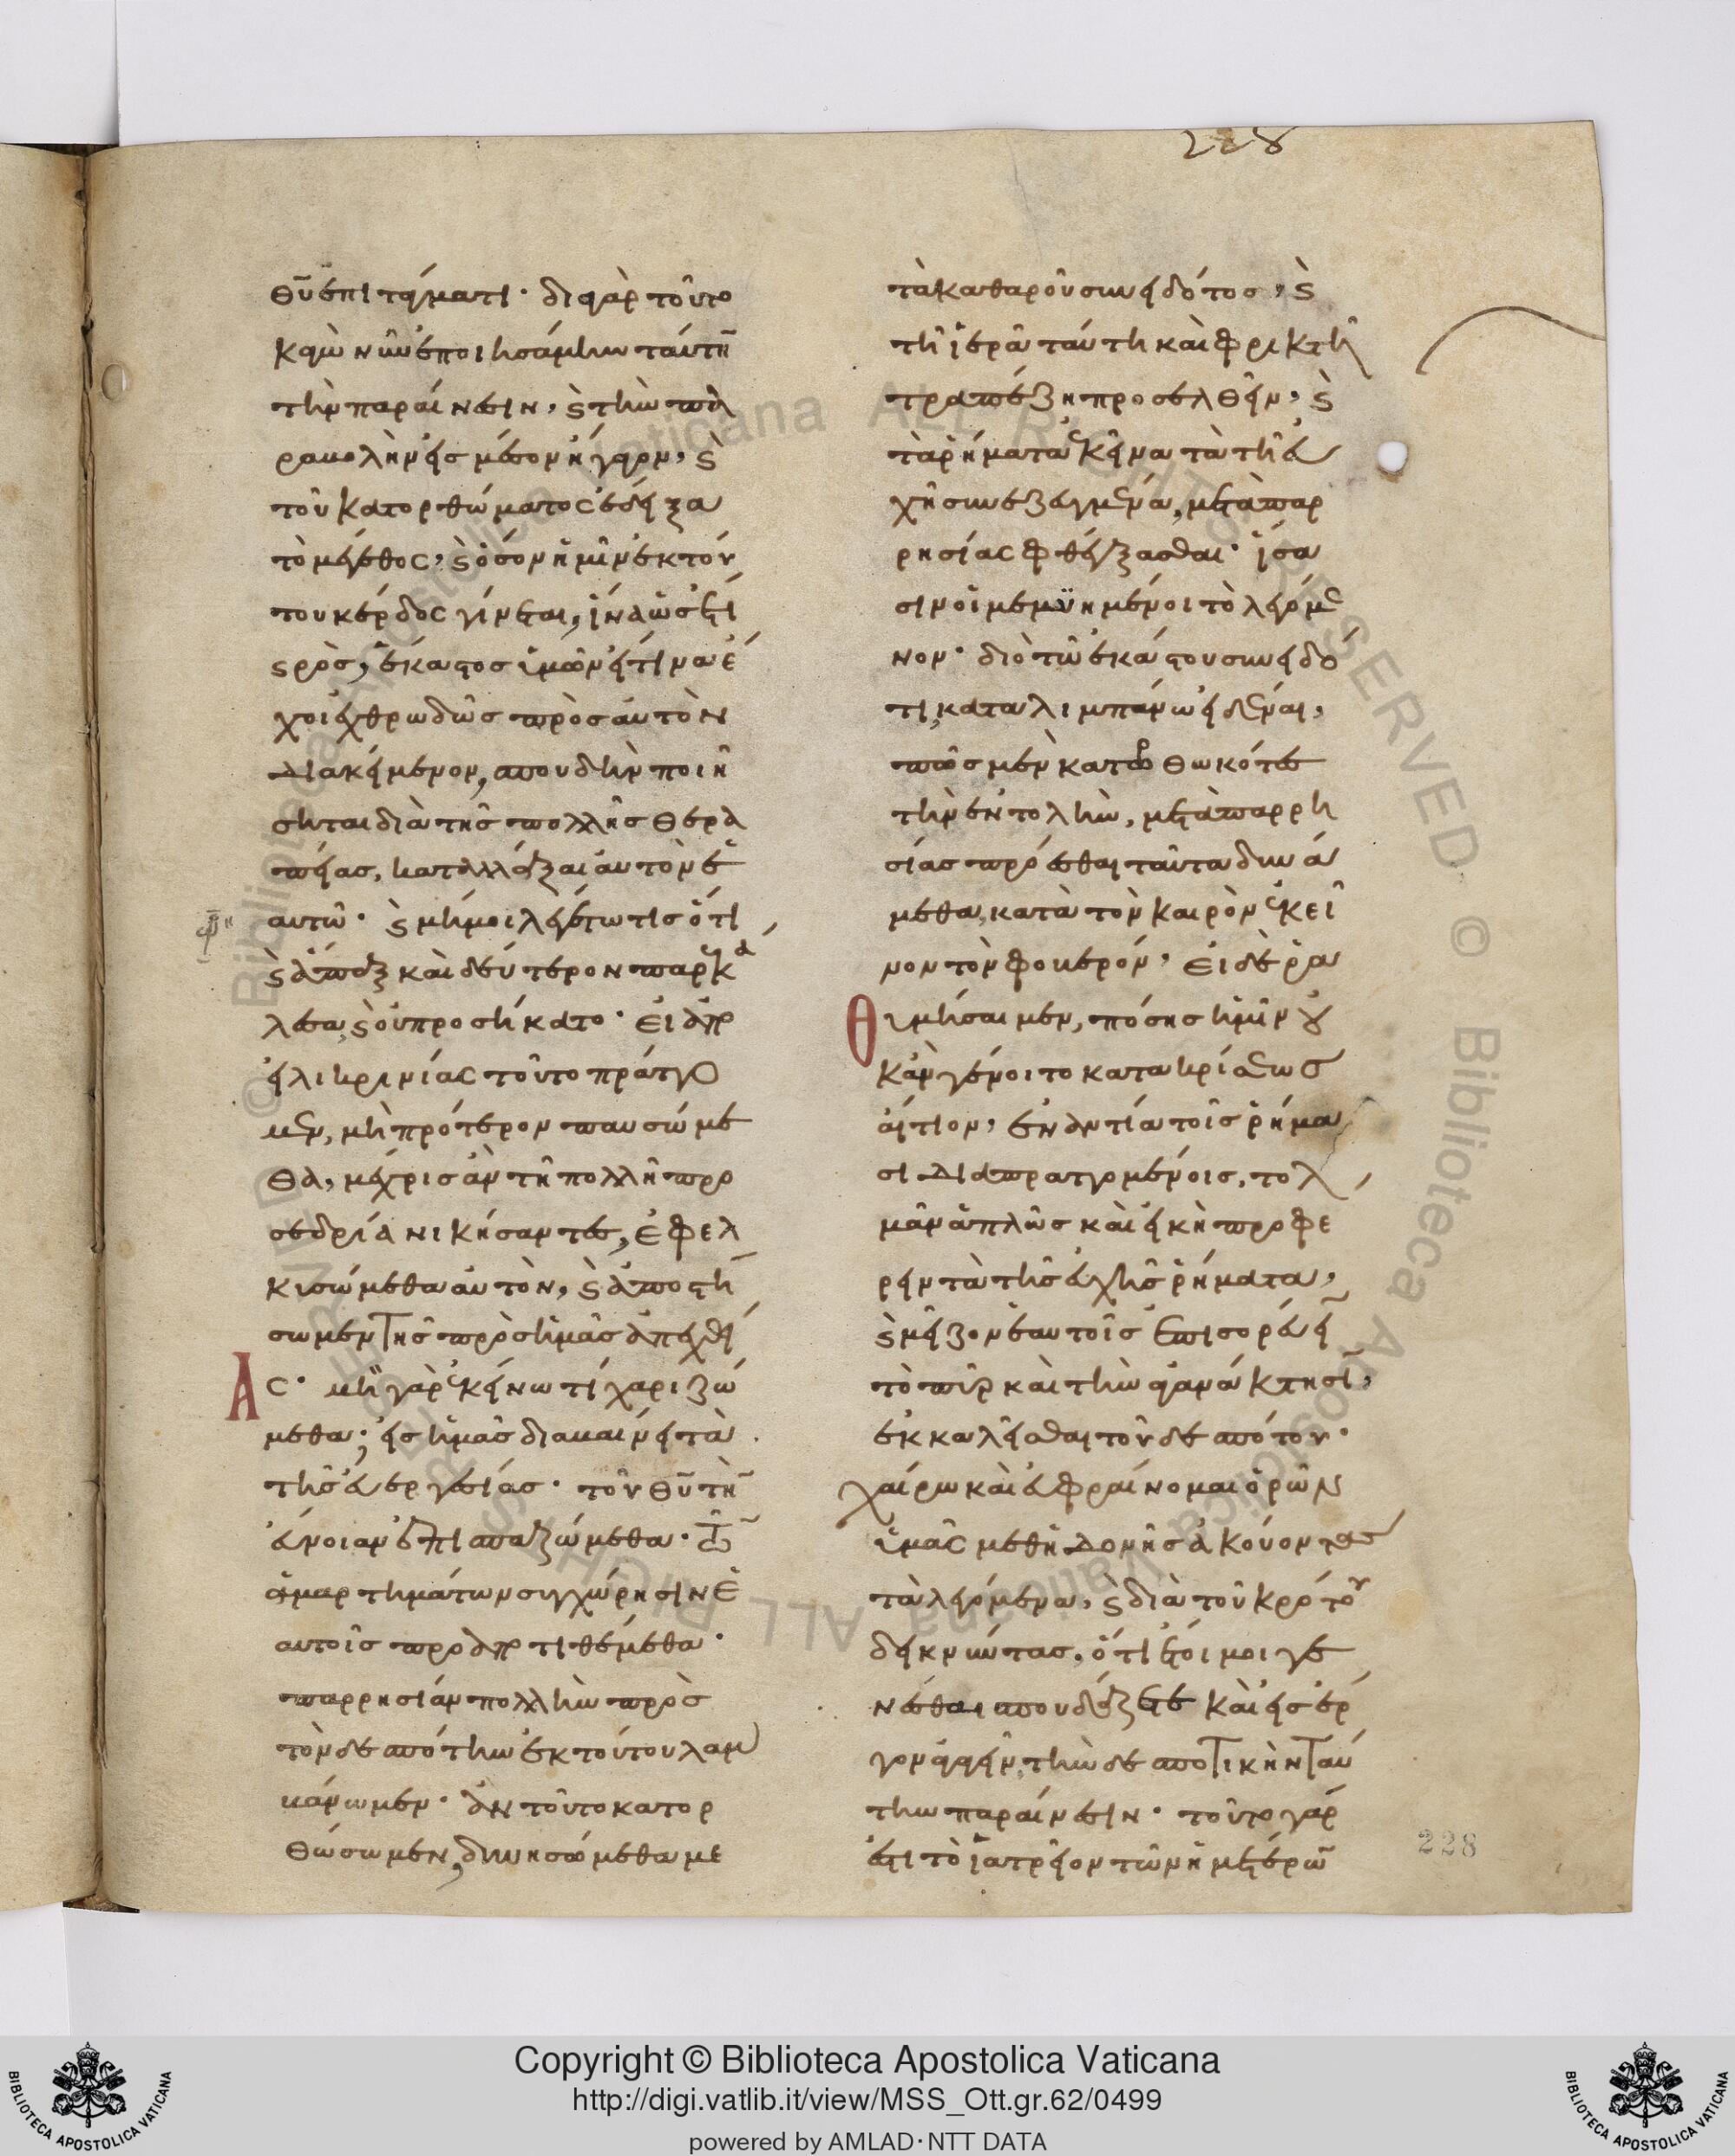 228
θῦ ἐπιτάγματι· διὰ γὰρ τοῦτο
κἀγὼ νῦν ἐποιησάμην ταύτην
τὴν παραίνεσιν, καὶ τὴν πα
ραβολὴν εἰς μέσον ἤγαγον, καὶ
τοῦ κατορθώματος ἔδειξα
τὸ μέγεθος, καὶ ὅσον ἡμῖν ἐκ τού
του κέρδος γίνεται, ἵνα ὡς ἔτι
καιρὸς, ἕκαστος ὑμῶν εἴ τινα ἔ
χοι ἐχθρωδῶς πρὸς αὐτὸν
διακείμενον, σπουδὴν ποιή
σηται διὰ τῆς πολλῆς θερα
πείας, καταλλάξαι αὐτὸν ἑ
αυτῷ· καὶ μή μοι λεγέτω τις ὅτι
καὶ ἅπαξ καὶ δεύτερον παρεκά
λεσα, καὶ οὐ προσήκατο· εἰ ἀπὸ
εἰλικρινίας τοῦτο πράττο
μεν, μὴ πρότερον παυσώμε
θα, μέχρις ἂν τῇ πολλῇ προ
σεδρίᾳ νικήσαντες, ἐφελ
κυσώμεθα αὐτὸν, καὶ ἀποστή
σωμεν τῆς πρὸς ἡμᾶς ἀπεχθεί
ας· μὴ γὰρ ἐκείνῳ τι χαριζώ
μεθα; εἰς ἡμᾶς διαβαίνει τὰ
τῆς εὐεργεσίας· τοῦ θῦ τὴν
εὔνοιαν ἐπισπαζώμεθα· τῶν
ἁμαρτημάτων συγχώρησιν ἑ
αυτοῖς προαποτιθέμεθα·
παρρησίαν πολλὴν πρὸς
τὸν δεσπότην ἐκ τούτου λαμ
βάνωμεν· ἂν τοῦτο κατορ
θώσωμεν, δυνησόμεθα με
τὰ καθαροῦ συνειδότος, καὶ
τῇ ἱερᾷ ταύτῃ καὶ φρικτῇ
τραπέζῃ προσελθεῖν, καὶ
τὰ ῥήματα ἐκεῖνα τὰ τῇ εὐ
χῇ συνεζευγμένα, μετὰ παρ
ρησίας φθέγξασθαι· ἴσα
σιν οἱ μεμυημένοι τὸ λεγόμε
νον· διὸ τῷ ἑκάστου συνειδό
τι, καταλιμπάνω εἰδέναι,
πῶς μὲν κατορθωκότες
τὴν ἐντολὴν, μετὰ παρρη
σίας προέσθαι ταῦτα δυνά
μεθα, κατὰ τὸν καιρὸν ἐκεῖ
νον τὸν φοβερόν· εἰ δὲ ῥα
θυμήσαιμεν, πόσης ἡμῖν οὐ
κἂν γένοιτο κατακρίσεως
αἴτιον, ἐναντία τοῖς ῥήμα
σι διαπραττομένοις, τολ
μᾶν ἁπλῶς καὶ εἰκῆ προφέ
ρειν τὰ τῆς εὐχῆς ῥήματα,
καὶ μεῖζον ἑαυτοῖς ἐπισωρεύειν
τὸ πῦρ καὶ τὴν ἀγανάκτησιν,
ἐκκαλεῖσθαι τοῦ δεσπότου·
χαίρω καὶ εὐφραίνομαι ὁρῶν
ὑμᾶς μεθ' ἡδονῆς ἀκούοντας
τὰ λεγόμενα, καὶ διὰ τοῦ κρότου
δεικνύντας, ὅτι ἕτοιμοι γε
νέσθαι σπουδάζετε καὶ εἰς ἔρ
γον ἀγαγεῖν, τὴν δεσποτικὴν ταύ
την παραίνεσιν· τοῦτο γάρ
ἐστι τὸ ἰατρεῖον τῶν ἡμετέρων
228
© Biblioteca Apostolica Vaticana ALL RIGHTS RESERVED © Biblioteca Apostolica Vaticana ALL RIGHTS RESERVED
Copyright © Biblioteca Apostolica Vaticana
http://digi.vatlib.it/view/MSS_Ott.gr.62/0499
powered by AMLAD·NTT DATA
BIBLIOTECA APOSTOLICA VATICANA
BIBLIOTECA APOSTOLICA VATICANA